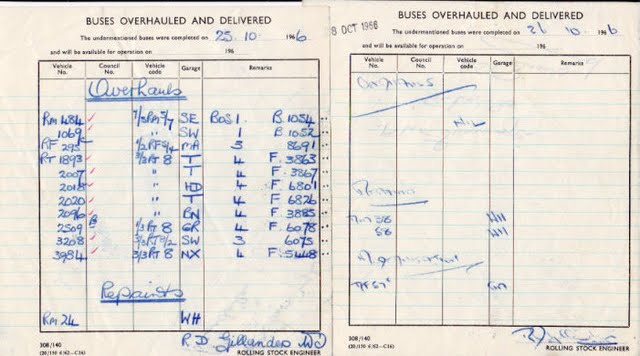 BUSES OVERHAULED AND DELIVERED
The undermentioned buses were completed on 25.10. 1966
and will be available for operation on 196
Vehicle No. Council No. Vehicle code Garage Remarks
Overhauls
RM 484 1/3RM5/7 SE BOS 1. B.1054
1069 " SW 1 B.1052
RF 295 1/2RF5/4 MA 3 8691
RT 1893 3/2RT 8 T 4 F.3863
2007 " T 4 F.3867
2018 " HD 4 F.6801
2020 " T 4 F.6826
2096 " BN 4 F.3885
2509 B 1/3RT 8 GR 4 F.6078
3208 SW 3 6075
3984 3/3RT 8 NX 4 F.5448
Repaints
RM 24 WH
R D Gillanders
208/140 ROLLING STOCK ENGINEER
BUSES OVERHAULED AND DELIVERED
OCT 1966
The undermentioned buses were completed on 21 10 1966
and will be available for operation on 196
Vehicle No. Council No. Vehicle code Garage Remarks
Overhauls
NIL
Repaints
58 WH
58 WH
208/140
ROLLING STOCK ENGINEER